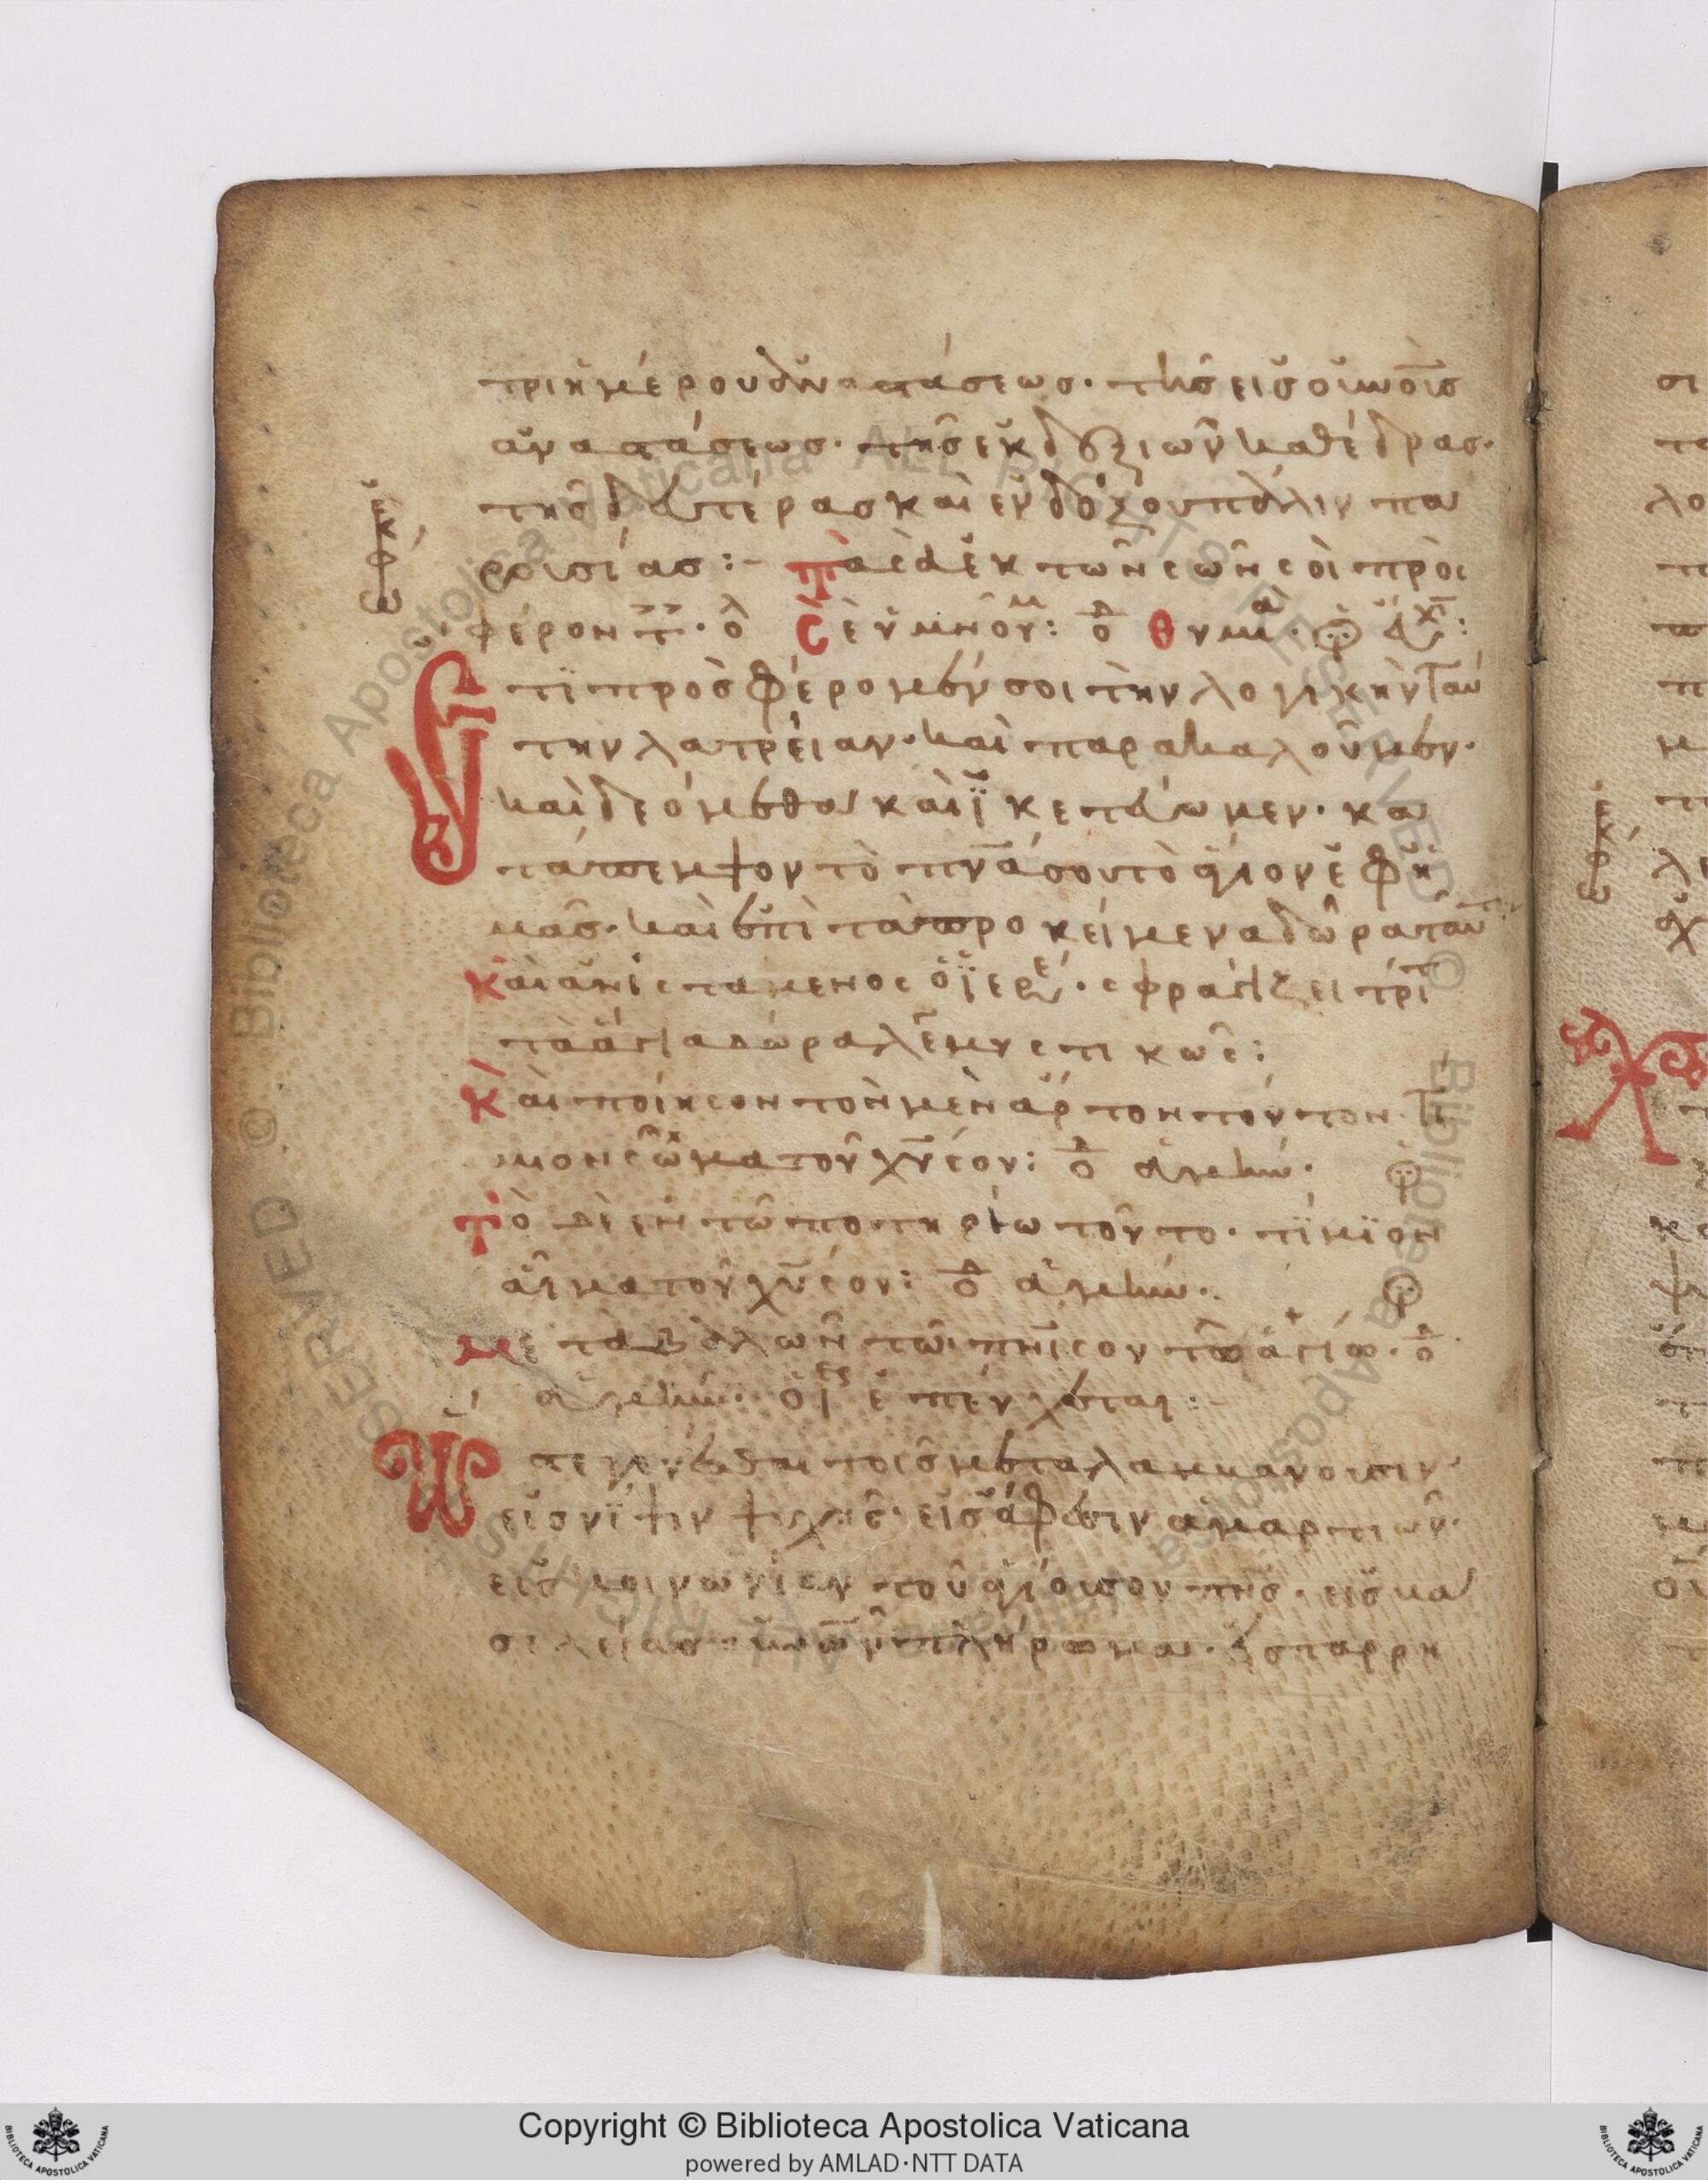 τριημέρου ἀναστάσεως· τῆς εἰς οὐνοὺς
ἀναστάσεως· τῆς ἐκ δεξιῶν καθέδρας·
τῆς δευτέρας καὶ ἐνδόξου πάλιν πα
ρουσίας :– Τὰ σὰ ἐκ τῶν σῶν σοὶ προσ
ἐκφώ
φέρον
Σὲ ὑμνοῦ :
Ἔτι προσφέρομέν σοι τὴν λογικὴν ταύ
την λατρείαν· καὶ παρακαλοῦμεν·
καὶ δεόμεθα καὶ ἱκετεύωμεν· κα
τάπεμψον τὸ πνᾶ σου τὸ ἅγιον ἐφ ἡ
μᾶς· καὶ ἐπὶ τὰ προκείμενα δῶρα ταῦτ
καὶ ἀνιστάμενος ὁ ἱερεύ· σφραγίζει τρίτ
τὰ ἅγια δῶρα λέγ μυστικῶς :
Καὶ ποίησον τὸν μὲν ἄρτον τοῦτον· τί
μιον σῶμα τοῦ χῦ σου : ὁ δ ἀμήν·
Τὸ δὲ ἐν τῶ ποτηρίω τοῦτο· τίμϊον
αἷμα τοῦ χῦ σου : ὁ δ ἀμήν·
μεταβαλὼν τῶ πνῖ σου τῶ ἁγίω· ὁ δ
ἀμήν· ὁ ἱερ ἐπεύχεται :
Ὥστε γενέσθαι τοῖς μεταλαμμάνουσιν·
εἰς νίψιν ψυχῆς· εἰς ἄφεσιν ἁμαρτιῶν·
εἰς κοινωνίαν τοῦ ἁγίου σου πνς· εἰς βα
σιλείας οὐνῶν πλήρωμα· εἰς παρρη
Copyright © Biblioteca Apostolica Vaticana
powered by AMLAD·NTT DATA